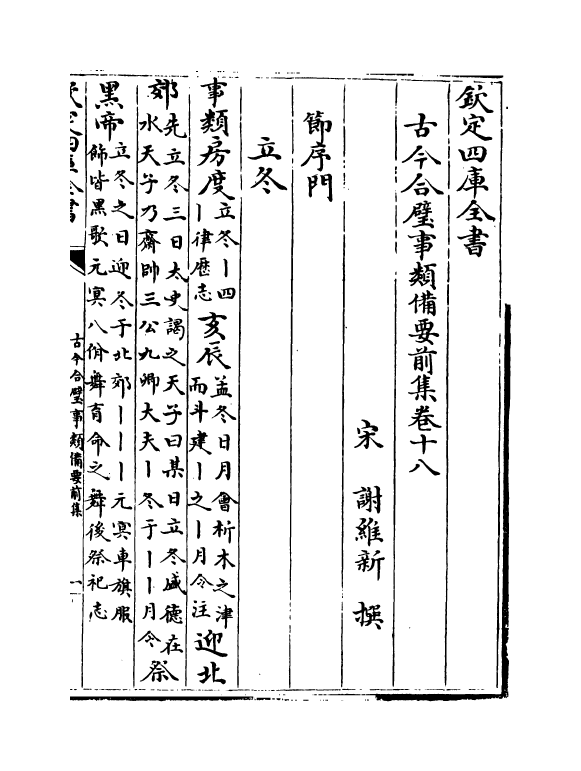 欽定四庫全書
古今合璧事類備要前集卷十八
宋　謝維新　撰
節序門
立冬
事類房度立冬丨四丨律歴志亥辰孟冬日月會析木之津而斗建丨之丨月令注迎北
郊先立冬三日太史謁之天子曰某日立冬盛德在水天子乃齋帥三公九卿大夫丨冬于丨丨月令祭
黑帝立冬之日迎冬于北郊丨丨丨元冥車旗服飾皆黑歌元冥八佾舞育命之舞後祭祀志
欽定四庫全書
古今合璧事類備要前集
一